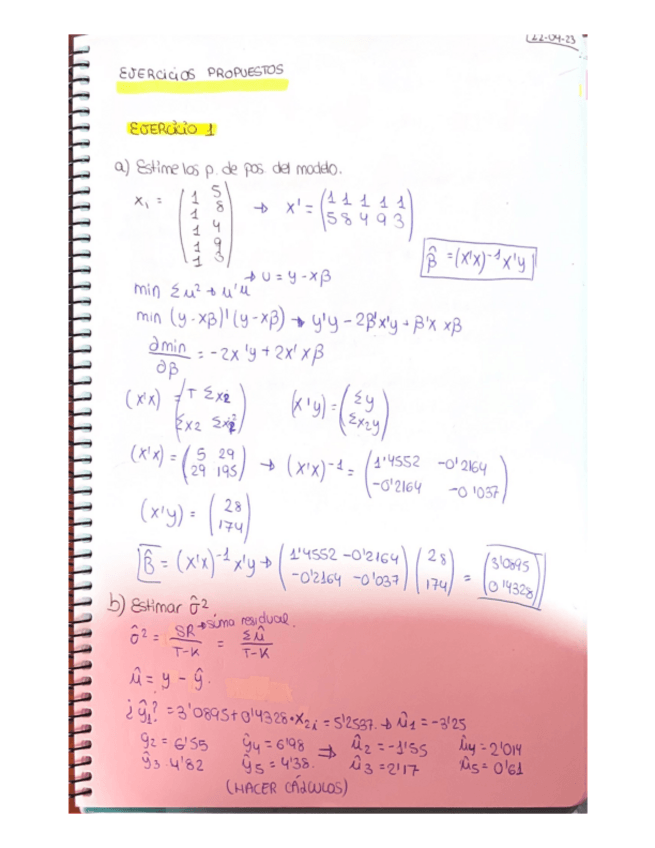 22-04-23
EJERCICIOS PROPUESTOS
EJERCICIO 1
a) Estime los p. de pos. del modelo.
X₁ = (1 5; 1 8; 1 4; 1 9; 1 3) → X' = (1 1 1 1 1; 5 8 4 9 3)
β̂ = (X'X)⁻¹ X'y
→ u = y - xβ
min Σu² → u'u
min (y - xβ)' (y - xβ) → y'y - 2β'x'y + β'x xβ
∂min/∂β = -2x'y + 2x' xβ
(X'X) = (T Σx₂; Σx₂ Σx₂²) (x'y) = (Σy; Σx₂y)
(X'X) = (5 29; 29 195) → (X'X)⁻¹ = (1'4552 -0'2164; -0'2164 -0'037)
(x'y) = (28; 174)
β̂ = (X'X)⁻¹ x'y → (1'4552 -0'2164; -0'2164 -0'037) (28; 174) = (3'0895; 0'4328)
b) Estimar σ̂²
σ̂² = SR/T-K = Σû/T-K → suma residual.
û = y - ŷ.
¿ŷ₁? = 3'0895 + 0'4328 · x₂ᵢ = 5'2537. → û₁ = -3'25
y₂ = 6'55 ŷ₄ = 6'98 ⇒ û₂ = -1'55 û₄ = 2'014
ŷ₃ · 4'82 ŷ₅ = 4'38. û₃ = 2'17 û₅ = 0'61
(HACER CÁLCULOS)